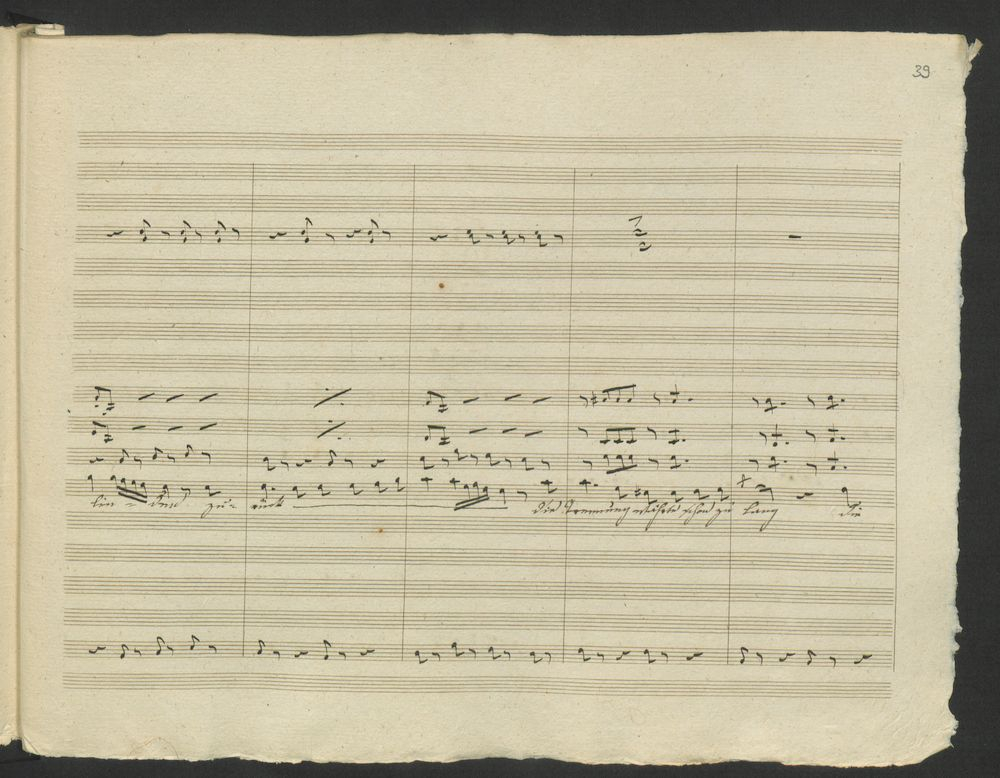 39
lin - den zu - rück die Trennung währte schon zu lang die